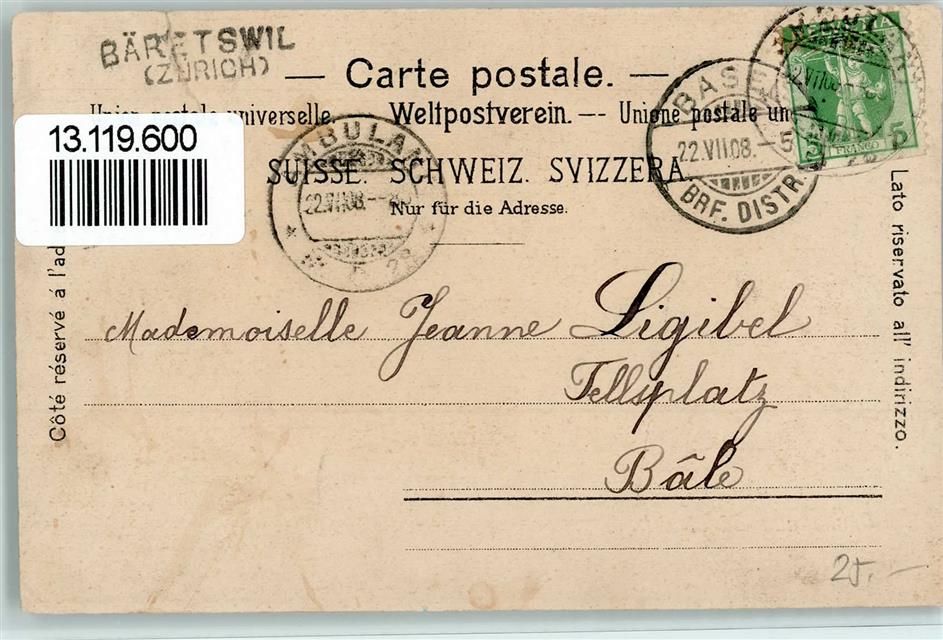 BÄRETSWIL
(ZÜRICH)
— Carte postale. —
Union postale universelle. Weltpostverein. -- Unione postale un
SUISSE. SCHWEIZ. SVIZZERA.
Nur für die Adresse.
13.119.600
AMBULANT
22.VII.08.
BASEL
22.VII.08.-5
BRF. DISTR.
HELVETIA
5 FRANCO 5
Côté réservé á l'ad
Lato riservato all' indirizzo.
Mademoiselle Jeanne Ligibel
Tellsplatz
Bâle
25.-